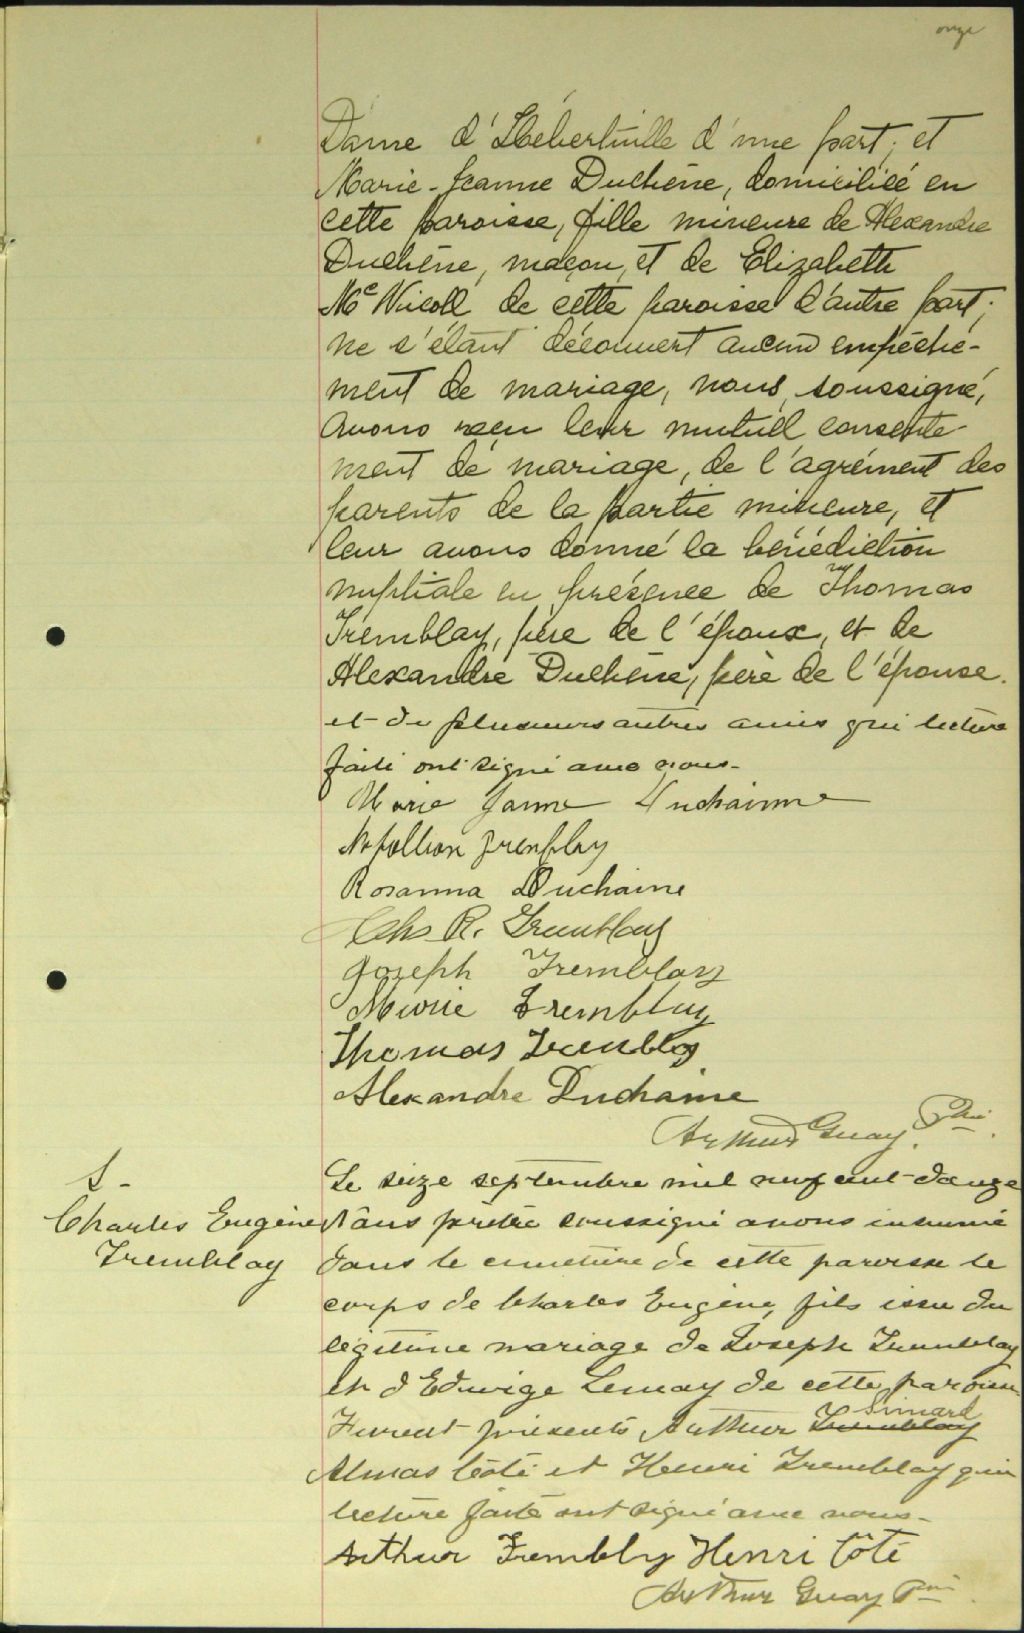 onze
Dame d'Hébertville d'une part; et
Marie-Jeanne Duchêne, domiciliée en
cette paroisse, fille mineure de Alexandre
Duchêne, maçon, et de Elizabeth
McNicoll de cette paroisse d'autre part;
ne s'étant découvert aucun empêche-
ment de mariage, nous, soussigné,
avons reçu leur mutuel consente-
ment de mariage, de l'agrément des
parents de la partie mineure, et
leur avons donné la bénédiction
nuptiale en présence de Thomas
Tremblay, père de l'époux, et de
Alexandre Duchêne, père de l'épouse.
et de plusieurs autres amis qui lecture
faite ont signé avec nous-
Marie Jeanne Duchainne
Napollion Trenblay
Rosanna Duchaine
Chs R. Tremblay
Joseph Tremblay
Marie Tremblay
Thomas Tremblay
Alexandre Duchaine
Arthur Guay. Ptre.
S-
Charles Eugène
Tremblay
Le seize septembre mil neuf cent-douze
Nous prêtre soussigné avons inhumé
dans le cimetière de cette paroisse le
corps de Charles Eugène, fils issu du
légitime mariage de Joseph Tremblay
et d'Edwige Lemay de cette paroisse.
Simard
Furent présents, Arthur Tremblay
Almas Côté et Henri Tremblay qui
lecture faite ont signé avec nous-
Arthur Trembly Henri Côté
Arthur Guay Ptre.